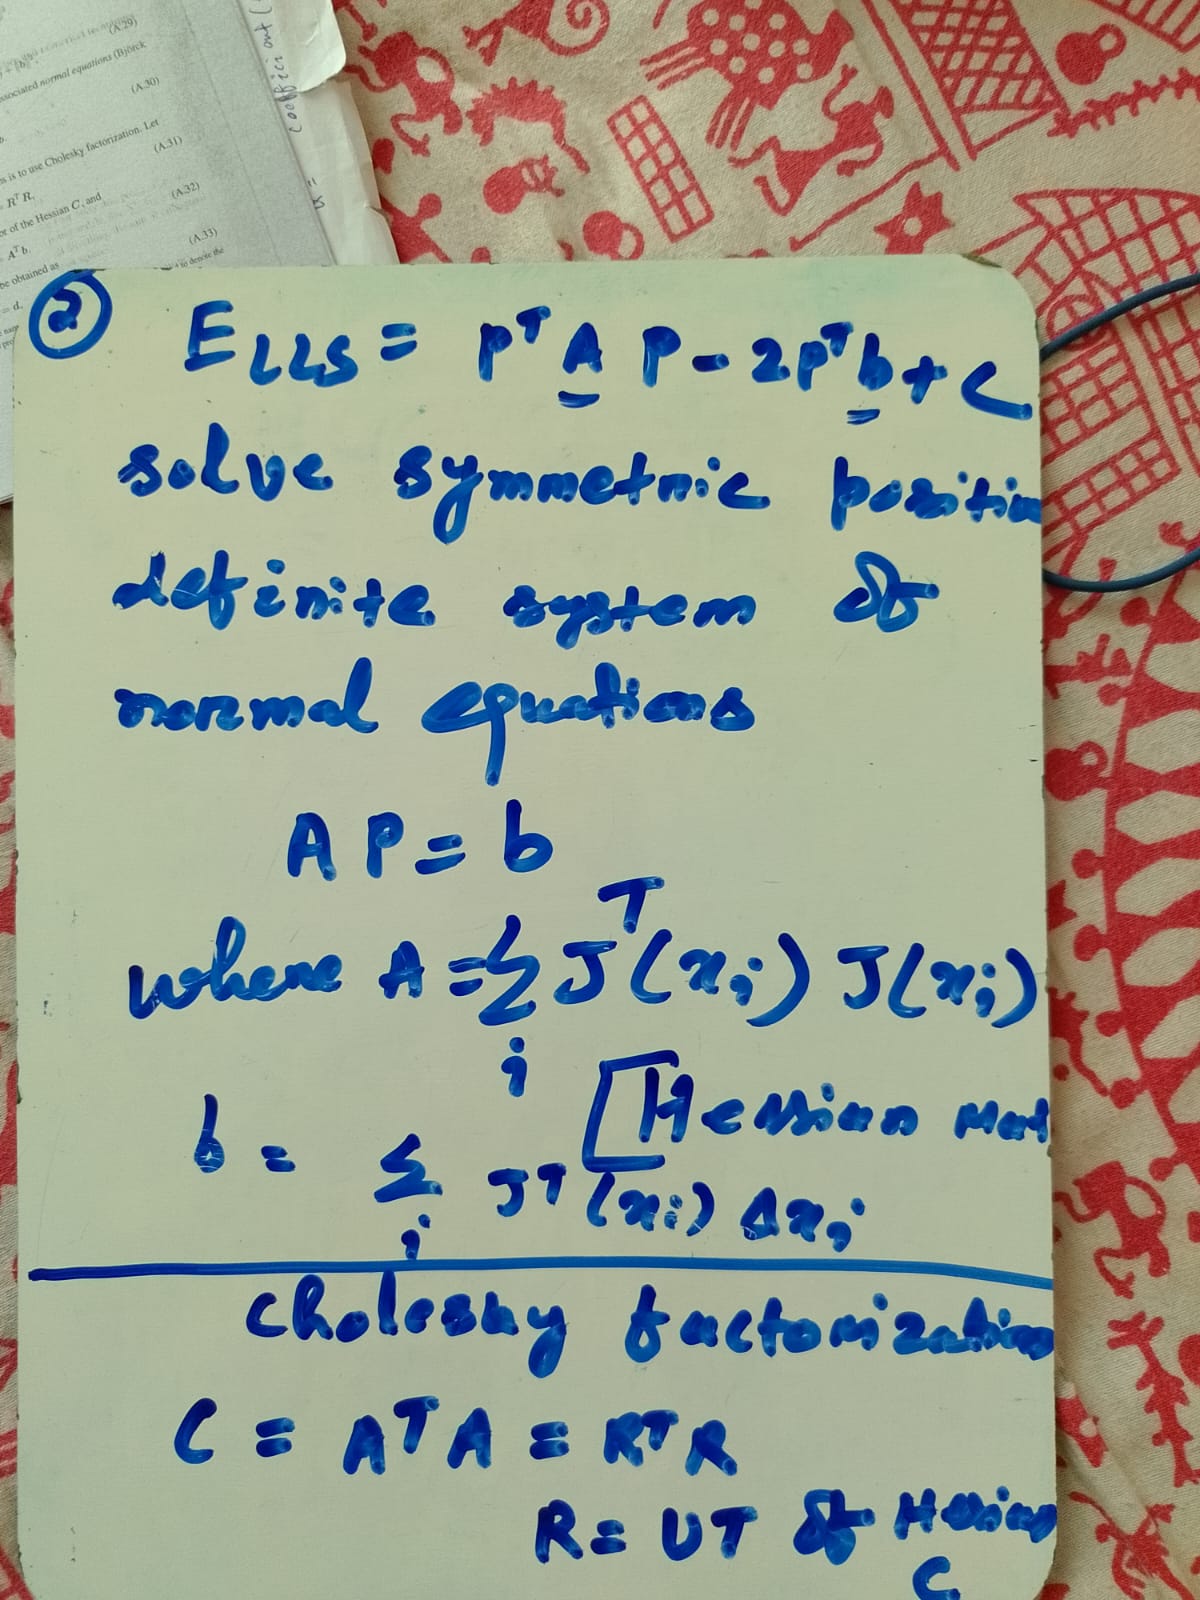 (A.29)
ssociated normal equations (Björck
(A.30)
s is to use Cholesky factorization. Let
(A.31)
RᵀR,
or of the Hessian C, and
(A.32)
Aᵀb.
(A.33)
be obtained as
= d,
to denote the
coefficient
② E_LLS = pᵀ A P - 2pᵀ b + C
solve symmetric positive
definite system of
normal equations
A P = b
where A = Σ_i Jᵀ(x_i) J(x_i)
[Hessian Mat
b = Σ_i Jᵀ(x_i) Δx_i
Cholesky factorization
C = AᵀA = RᵀR
R = UT of Hessian
C